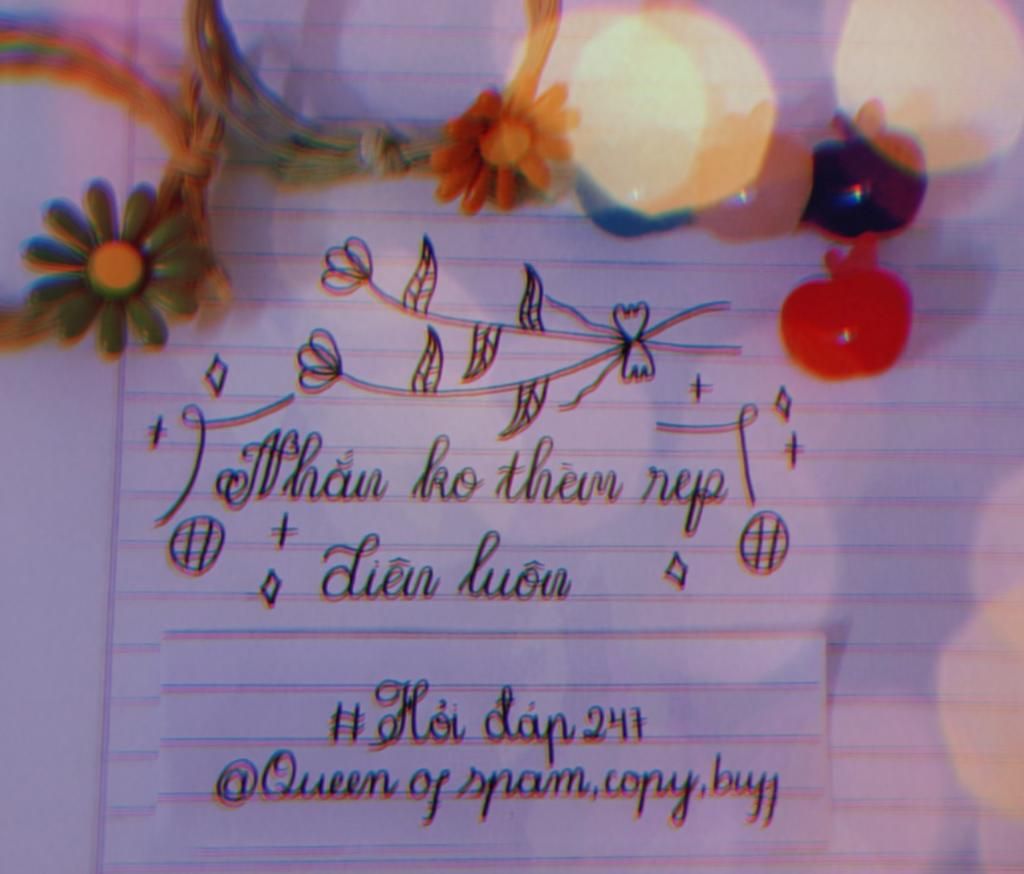 @Nhắn ko thèm rep
điên luôn
#Hỏi đáp 247
@Queen of spam,copy,buff